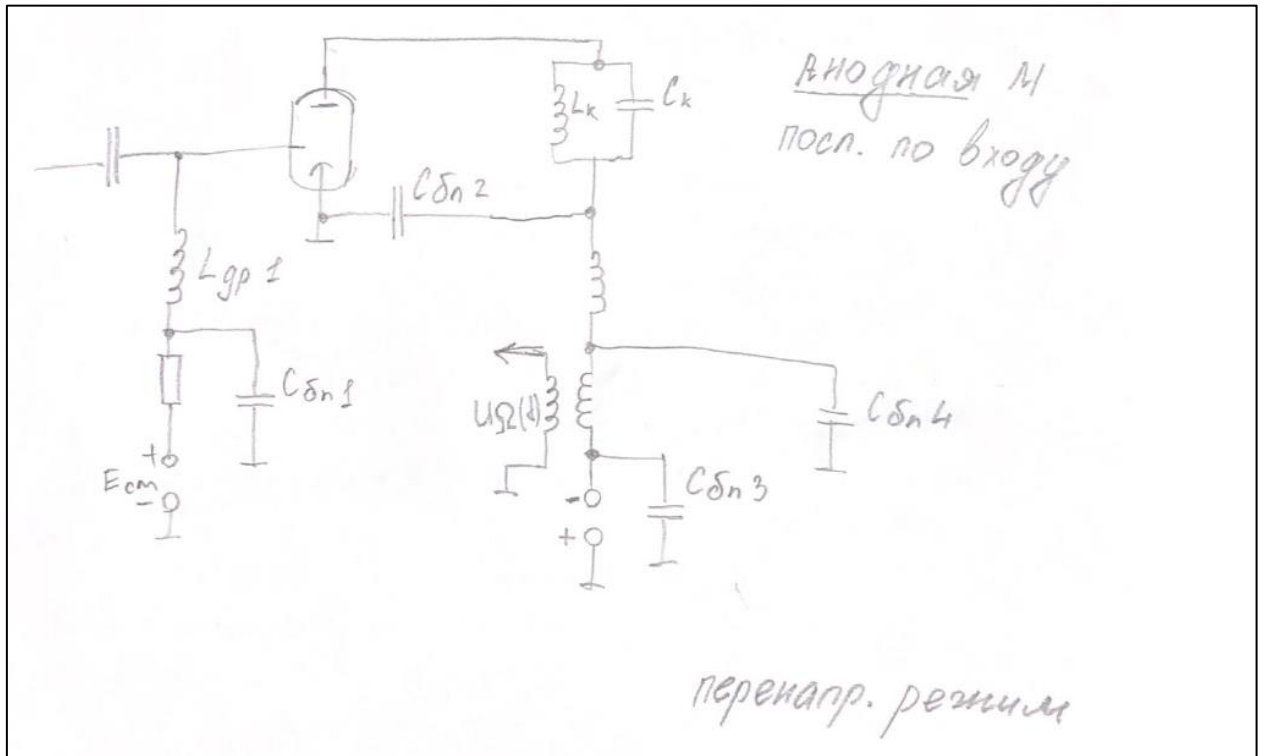 Анодная М
посл. по входу
Lк
Cк
Cбл 2
Lдр 1
Cбл 1
+
Eсм
-
UΩ(t)
Cбл 4
Cбл 3
-
+
перенапр. режим